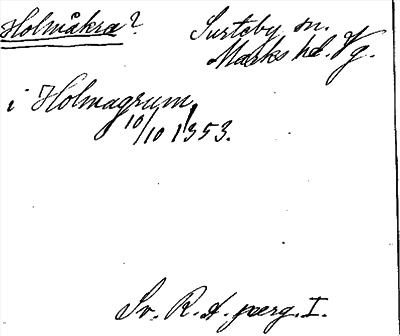 Holmåkra? Surteby sn.
Marks hd. Vg.
i Holmagrum,
10/10 1353.
Sv. R. A. perg. I.